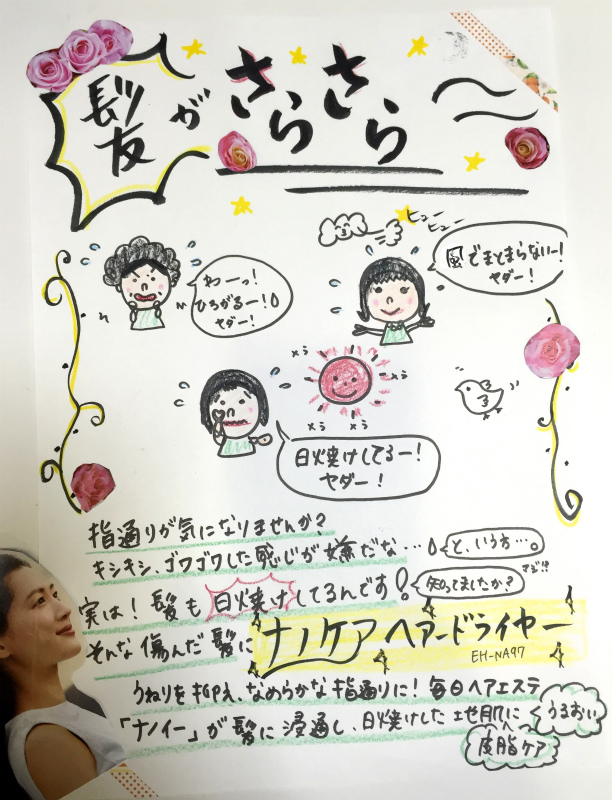 髪がさらさら〜
ヒュー
ヒュー
わーっ!
ひろがるー!
ヤダー!
風でまとまらないー!
ヤダー!
日火焼けしてるー!
ヤダー!
指通りが気になりませんか?
キシキシ、ゴワゴワした感じが嫌だな…
と、いうお…。
実は!髪も日火焼けしてるんです!
知ってましたか?
マジ!?
そんな傷んだ髪に
ナノケアヘアードライヤー
EH-NA97
うねりを抑え、なめらかな指通りに!毎日ヘアエステ
「ナノイー」が髪に浸透し、日火焼けした地肌に
うるおい
皮脂ケア